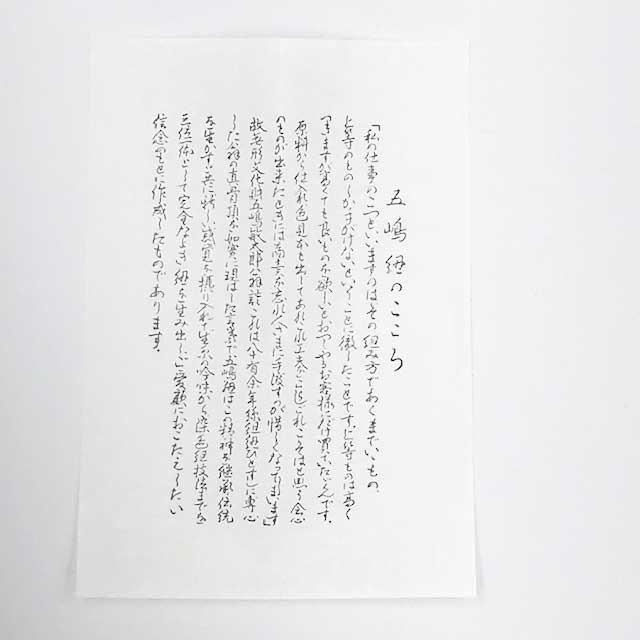 五嶋紐のこころ
「私の仕事のこつといいますのは、その組み方であくまでいいもの、
上等のものしか手がけないということに徹したことです。上等なものは高く
つきますが高くても良いものを欲しいとおっしゃるお客様にだけ買っていただくんです。
原料から仕入れ色見本を出してあれこれ工夫したこれこそはと思う会心
のものが出来たときには商売を忘れ人手に渡すのが惜しくなってしまいます」
故無形文化財五嶋敏太郎翁談これは八十有余年絲組紐ひとすじに専心
した翁の真骨頂を如実に現はした言葉で五嶋紐はこの精神を継承伝統
を生かすと共に新しい感覚を採り入れ生糸の吟味から染色組技法までを
三位一体として完全なよき紐を生み出し御愛顧におこたえしたい
信念のもとに作成したものであります。